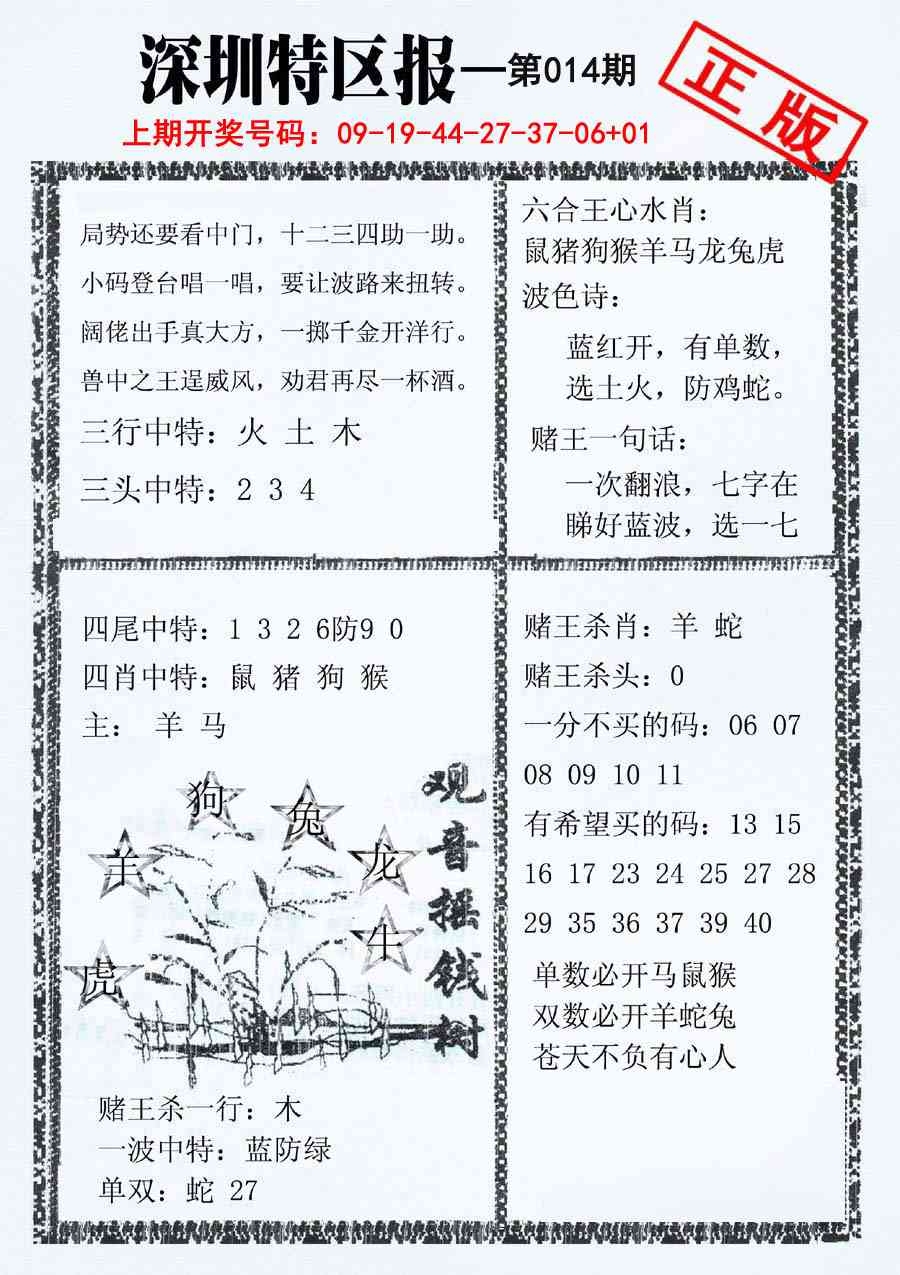 深圳特区报—第014期
正版
上期开奖号码：09-19-44-27-37-06+01
局势还要看中门，十二三四助一助。
小码登台唱一唱，要让波路来扭转。
阔佬出手真大方，一掷千金开洋行。
兽中之王逞威风，劝君再尽一杯酒。
三行中特：火 土 木
三头中特：2 3 4
六合王心水肖：
鼠猪狗猴羊马龙兔虎
波色诗：
蓝红开，有单数，
选土火，防鸡蛇。
赌王一句话：
一次翻浪，七字在
睇好蓝波，选一七
四尾中特：1 3 2 6防9 0
四肖中特：鼠 猪 狗 猴
主： 羊 马
狗
兔
羊
龙
牛
虎
观音摇钱树
赌王杀一行：木
一波中特：蓝防绿
单双：蛇 27
赌王杀肖：羊 蛇
赌王杀头：0
一分不买的码：06 07
08 09 10 11
有希望买的码：13 15
16 17 23 24 25 27 28
29 35 36 37 39 40
单数必开马鼠猴
双数必开羊蛇兔
苍天不负有心人